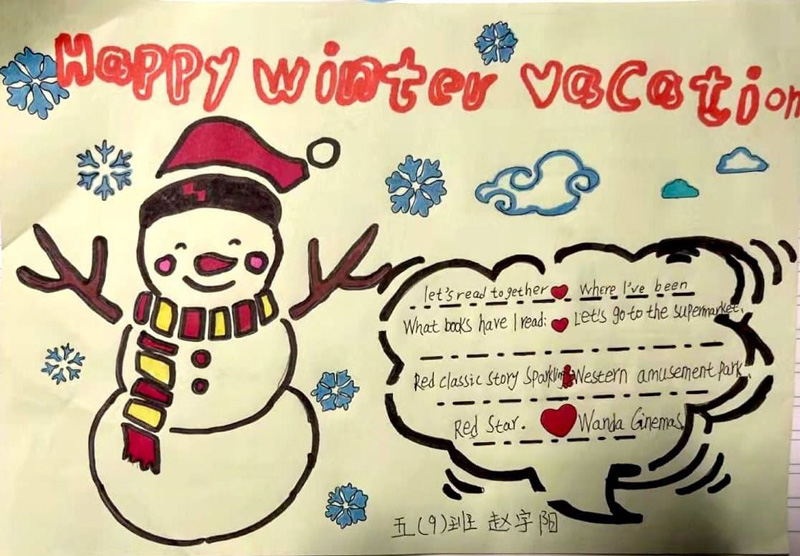 Happy winter vacation
let's read together Where I've been
What books have I read: Let's go to the supermarket.
Red classic story Sparkling Western amusement park.
Red Star. Wanda Cinemas
五(9)班 赵宇阳